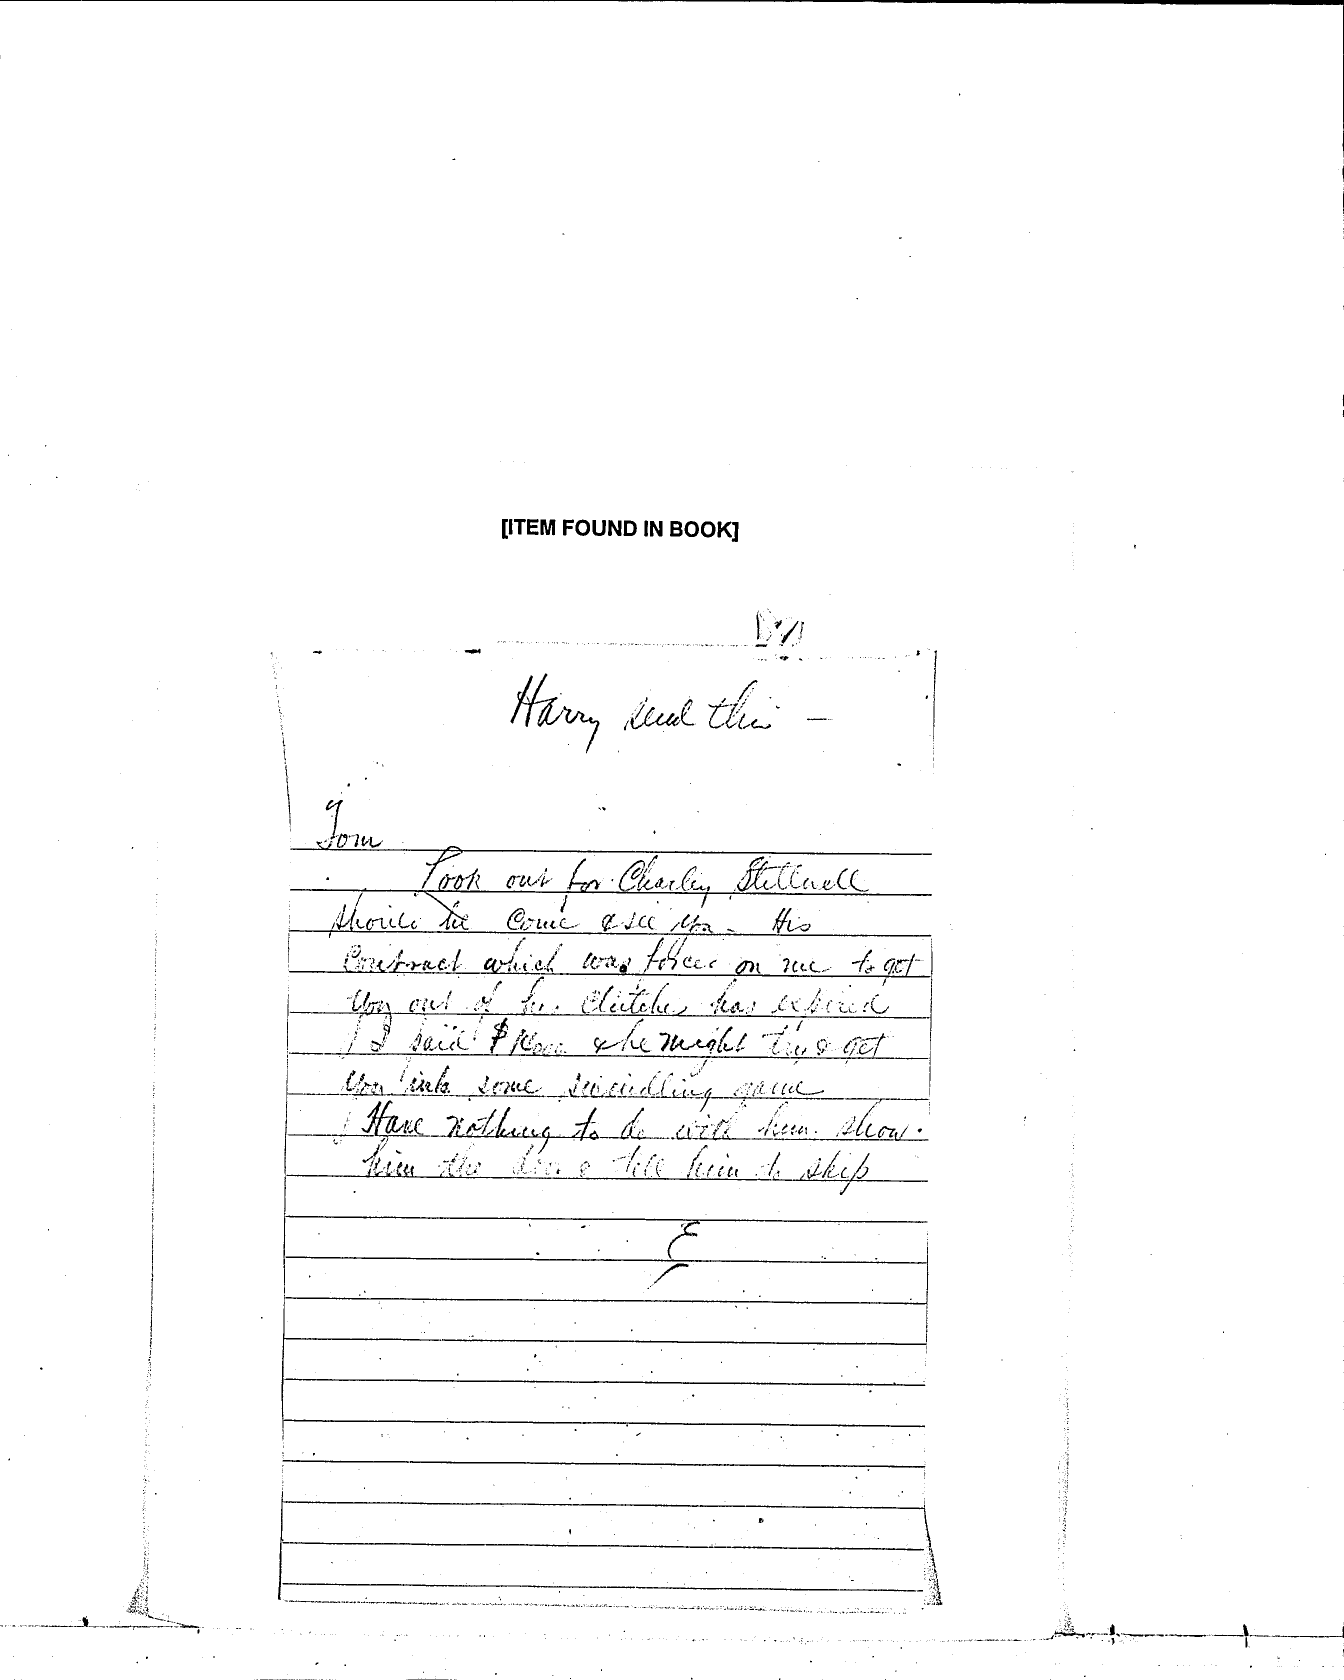 [ITEM FOUND IN BOOK]
Harry send this —
Tom
Look out for Charley Stillwell
should he come & see you — His
Contract which was forced on me to get
you out of his clutches has expired
I paid $ & he might try & get
you into some swindling game
Have nothing to do with him. show
him the door & tell him to skip
E